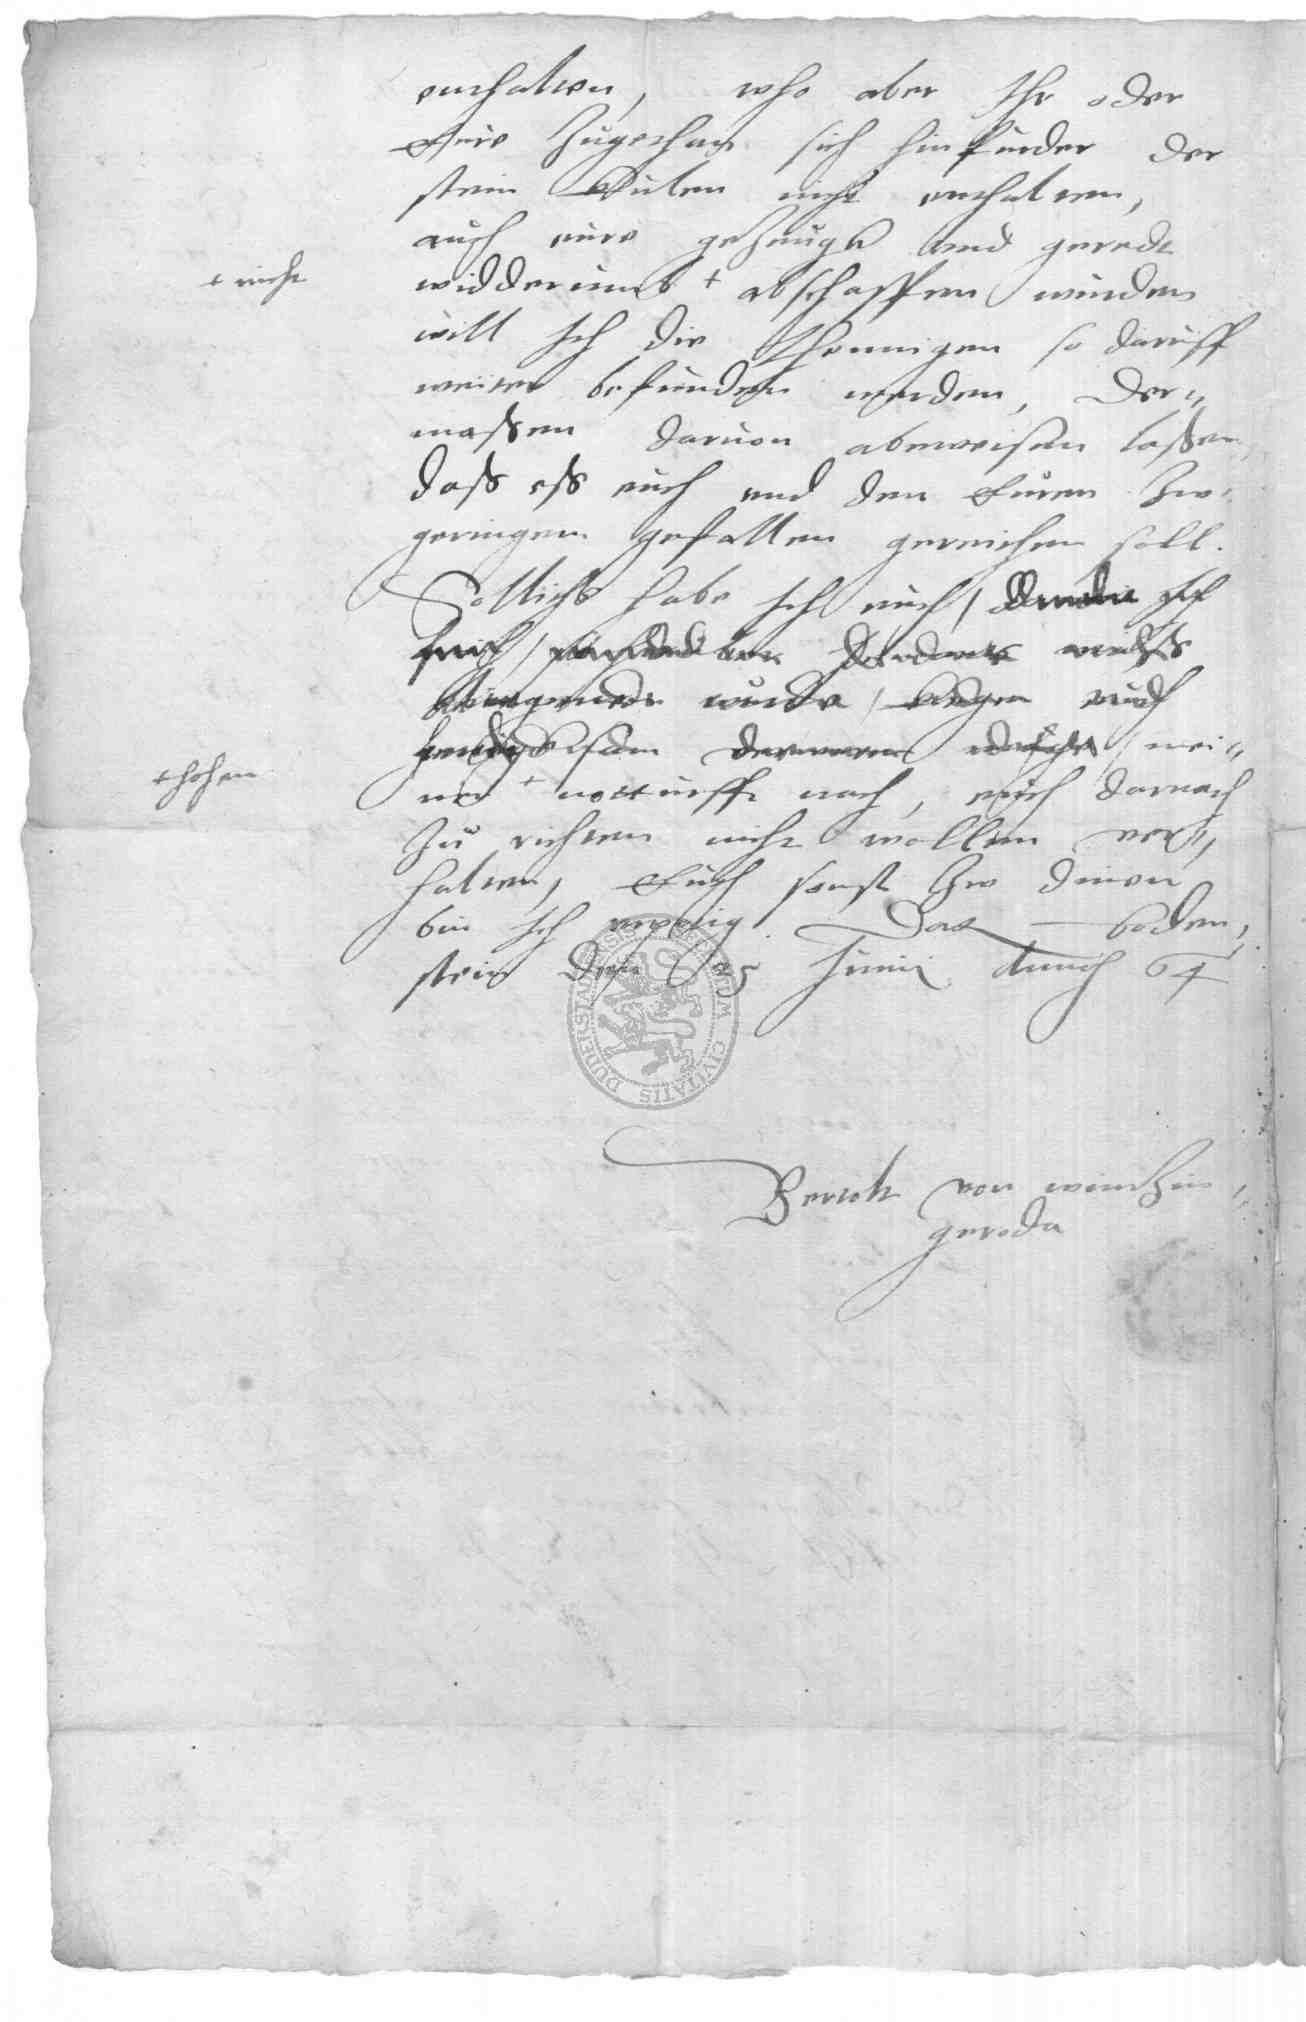 enthalten, who aber Ihr oder
Eure Zugethan sich hinfurder der
stein kulen nicht enthalten,
auch eure gezeugk und gerede
+ nicht
widderumb + abschaffen wurden
will Ich die Jhennigen so daruff
weiter befunden werden, der-
massen daruon abeweisen lassen,
dass ess euch und den Euren zw
geringen gefallen gereichen soll.
Sollichs habe Ich euch
wurde euch
mei-
+ hohen
ner + notturfft nach, euch darnach
Zu richten nicht wollen ver-
halten, Euch sonst zw dinen
bin Ich Dat boden-
stein den 25 Junii Anno 64
SIGILLUM CIVITATIS DUDERSTADENSIS
Bertolt von wintzin-
geroda